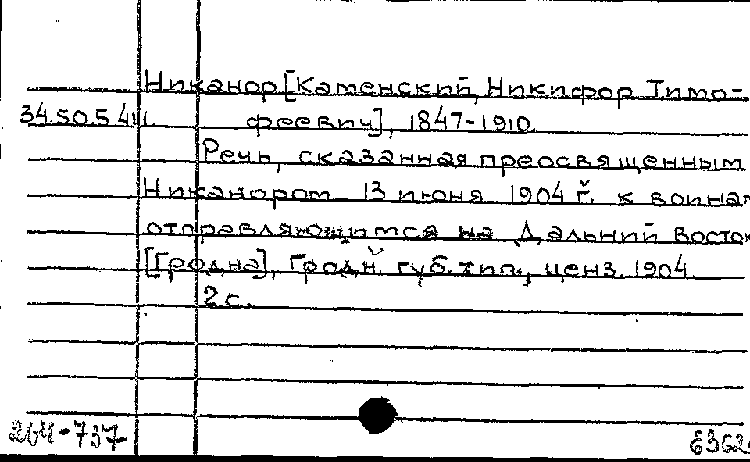 Никанор [Каменский, Никифор Тимо-
34.50.5.411. феевич], 1847-1910.
Речь, сказанная преосвященным
Никанором 13 июня 1904 г. к воинам
отправляющимся на Дальний Восток
[Гродна], Гродн. губ. тип., ценз. 1904.
2 с.
264-737